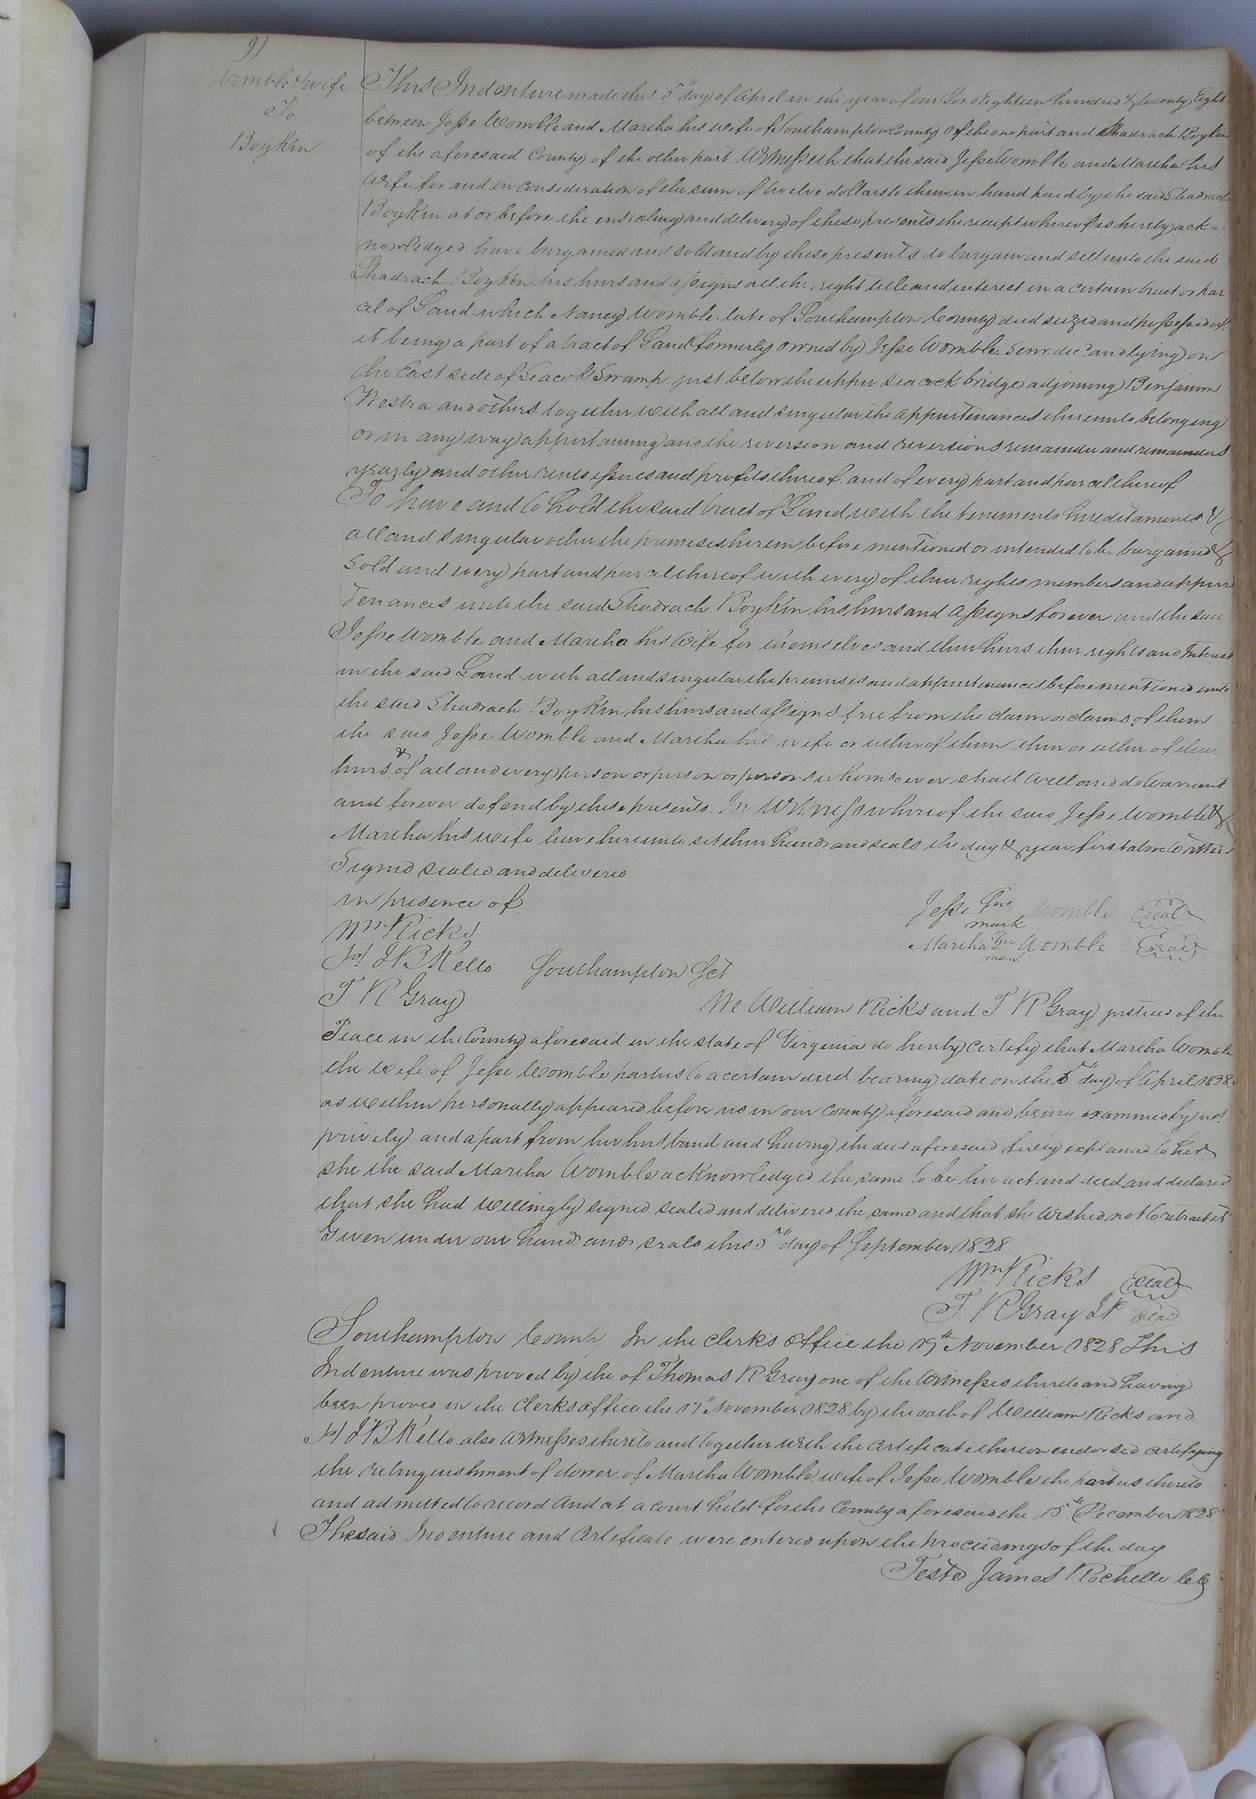 91
Womble & wife
To
Boykin
This Indenture made this 5th day of April in the year of our Lord Eighteen hundred & twenty Eight
between Jesse Womble and Martha his wife of Southampton County of the one part and Shadrach Boykin
of the aforesaid County of the other part Witnesseth that the said Jesse Womble and Martha his
wife for and in consideration of the sum of twelve dollars to them in hand paid by the said Shadrach
Boykin at or before the ensealing and delivery of these presents the receipt whereof is hereby ack=
nowledged have bargained and sold and by these presents do bargain and sell unto the said
Shadrach Boykin his heirs and assigns all the right title and interest in a certain tract or par
cel of Land which Nancy Womble late of Southampton County died seized and possessed of
it being a part of a tract of Land formerly owned by Jesse Womble Senr. decd. and lying on
the East side of Seacock Swamp just below the upper seacock bridge adjoining Benjamin
Westra and others together with all and singular the appurtenances thereunto belonging
or in any way appertaining and the reversion and reversions remainder and remainders
yearly and other rents issues and profits thereof and of every part and parcel thereof
To have and to hold the said tract of Land with the tenements hereditaments &
all and singular other the premises herein before mentioned or intended to be bargained &
Sold and every part and parcel thereof with every of their rights members and appur
tenances unto the said Shadrach Boykin his heirs and assigns forever and the said
Jesse Womble and Martha his Wife for themselves and their heirs their rights and Interest
in the said Land with all and singular the premises and appurtenances before mentioned unto
the said Shadrach Boykin his heirs and assigns free from the claim or claims of them
the said Jesse Womble and Martha his wife or either of them their or either of their
heirs & of all and every person or person or persons whomsoever shall will and do Warrant
and forever defend by these presents. In Witness whereof the said Jesse Womble &
Martha his wife have hereunto set their hands and seals the day & year first above Written
Signed sealed and delivered
in presence of
Jesse his mark Womble seal
Wm Ricks
Martha her mark Womble seal
J B Kello Southampton Sct
T R Gray We William Ricks and T R Gray justices of the
Peace in the County aforesaid in the state of Virginia do hereby certify that Martha Womble
the wife of Jesse Womble parties to a certain deed bearing date on the 5th day of April 1828
as within personally appeared before us in our County aforesaid and being examined by us
privily and apart from her husband and having the deed aforesaid fully explained to her
she the said Martha Womble acknowledged the same to be her act and deed and declared
that she had willingly signed sealed and delivered the same and that she wished not to retract it
Given under our hands and seals this 5th day of September 1828
Wm Ricks seal
T R Gray JP seal
Southampton County In the Clerk's Office the 19th November 1828 This
Indenture was proved by the of Thomas R Gray one of the Witnesses thereto and having
been proved in the Clerks office the 17th November 1828 by the oath of William Ricks and
J B Kello also Witnesses thereto and together with the certificate thereon endorsed certifying
the relinquishment of dower of Martha Womble wife of Jesse Womble the parties thereto
and admitted to record And at a court held for the County aforesaid the 15th December 1828
The said Indenture and Certificate were entered upon the proceedings of the day
Teste James Rochelle CC